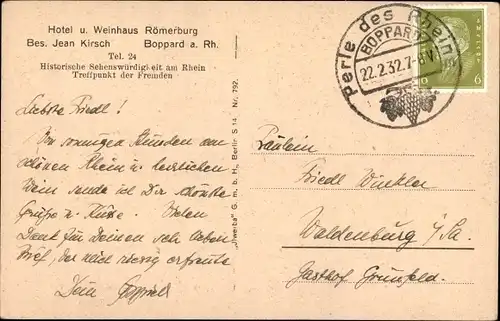 Hotel u. Weinhaus Römerburg
Bes. Jean Kirsch Boppard a. Rh.
Tel. 24
Historische Sehenswürdigkeit am Rhein
Treffpunkt der Fremden
Liebste Friedl!
Von sonnigen Stunden am
schönen Rhein u. herrlichen
Wein sende ich Dir schönste
Grüße u. Küsse. Vielen
Dank für Deinen sehr lieben
Brief, der mich riesig erfreute
Dein
"Jweba" G. m. b. H., Berlin S 14 Nr. 792.
Perle des Rheins
BOPPARD
22.2.32.7-8V.
6 6
Fräulein
Friedl Winkler
Waldenburg i/Sa.
Gasthof Grünfeld.